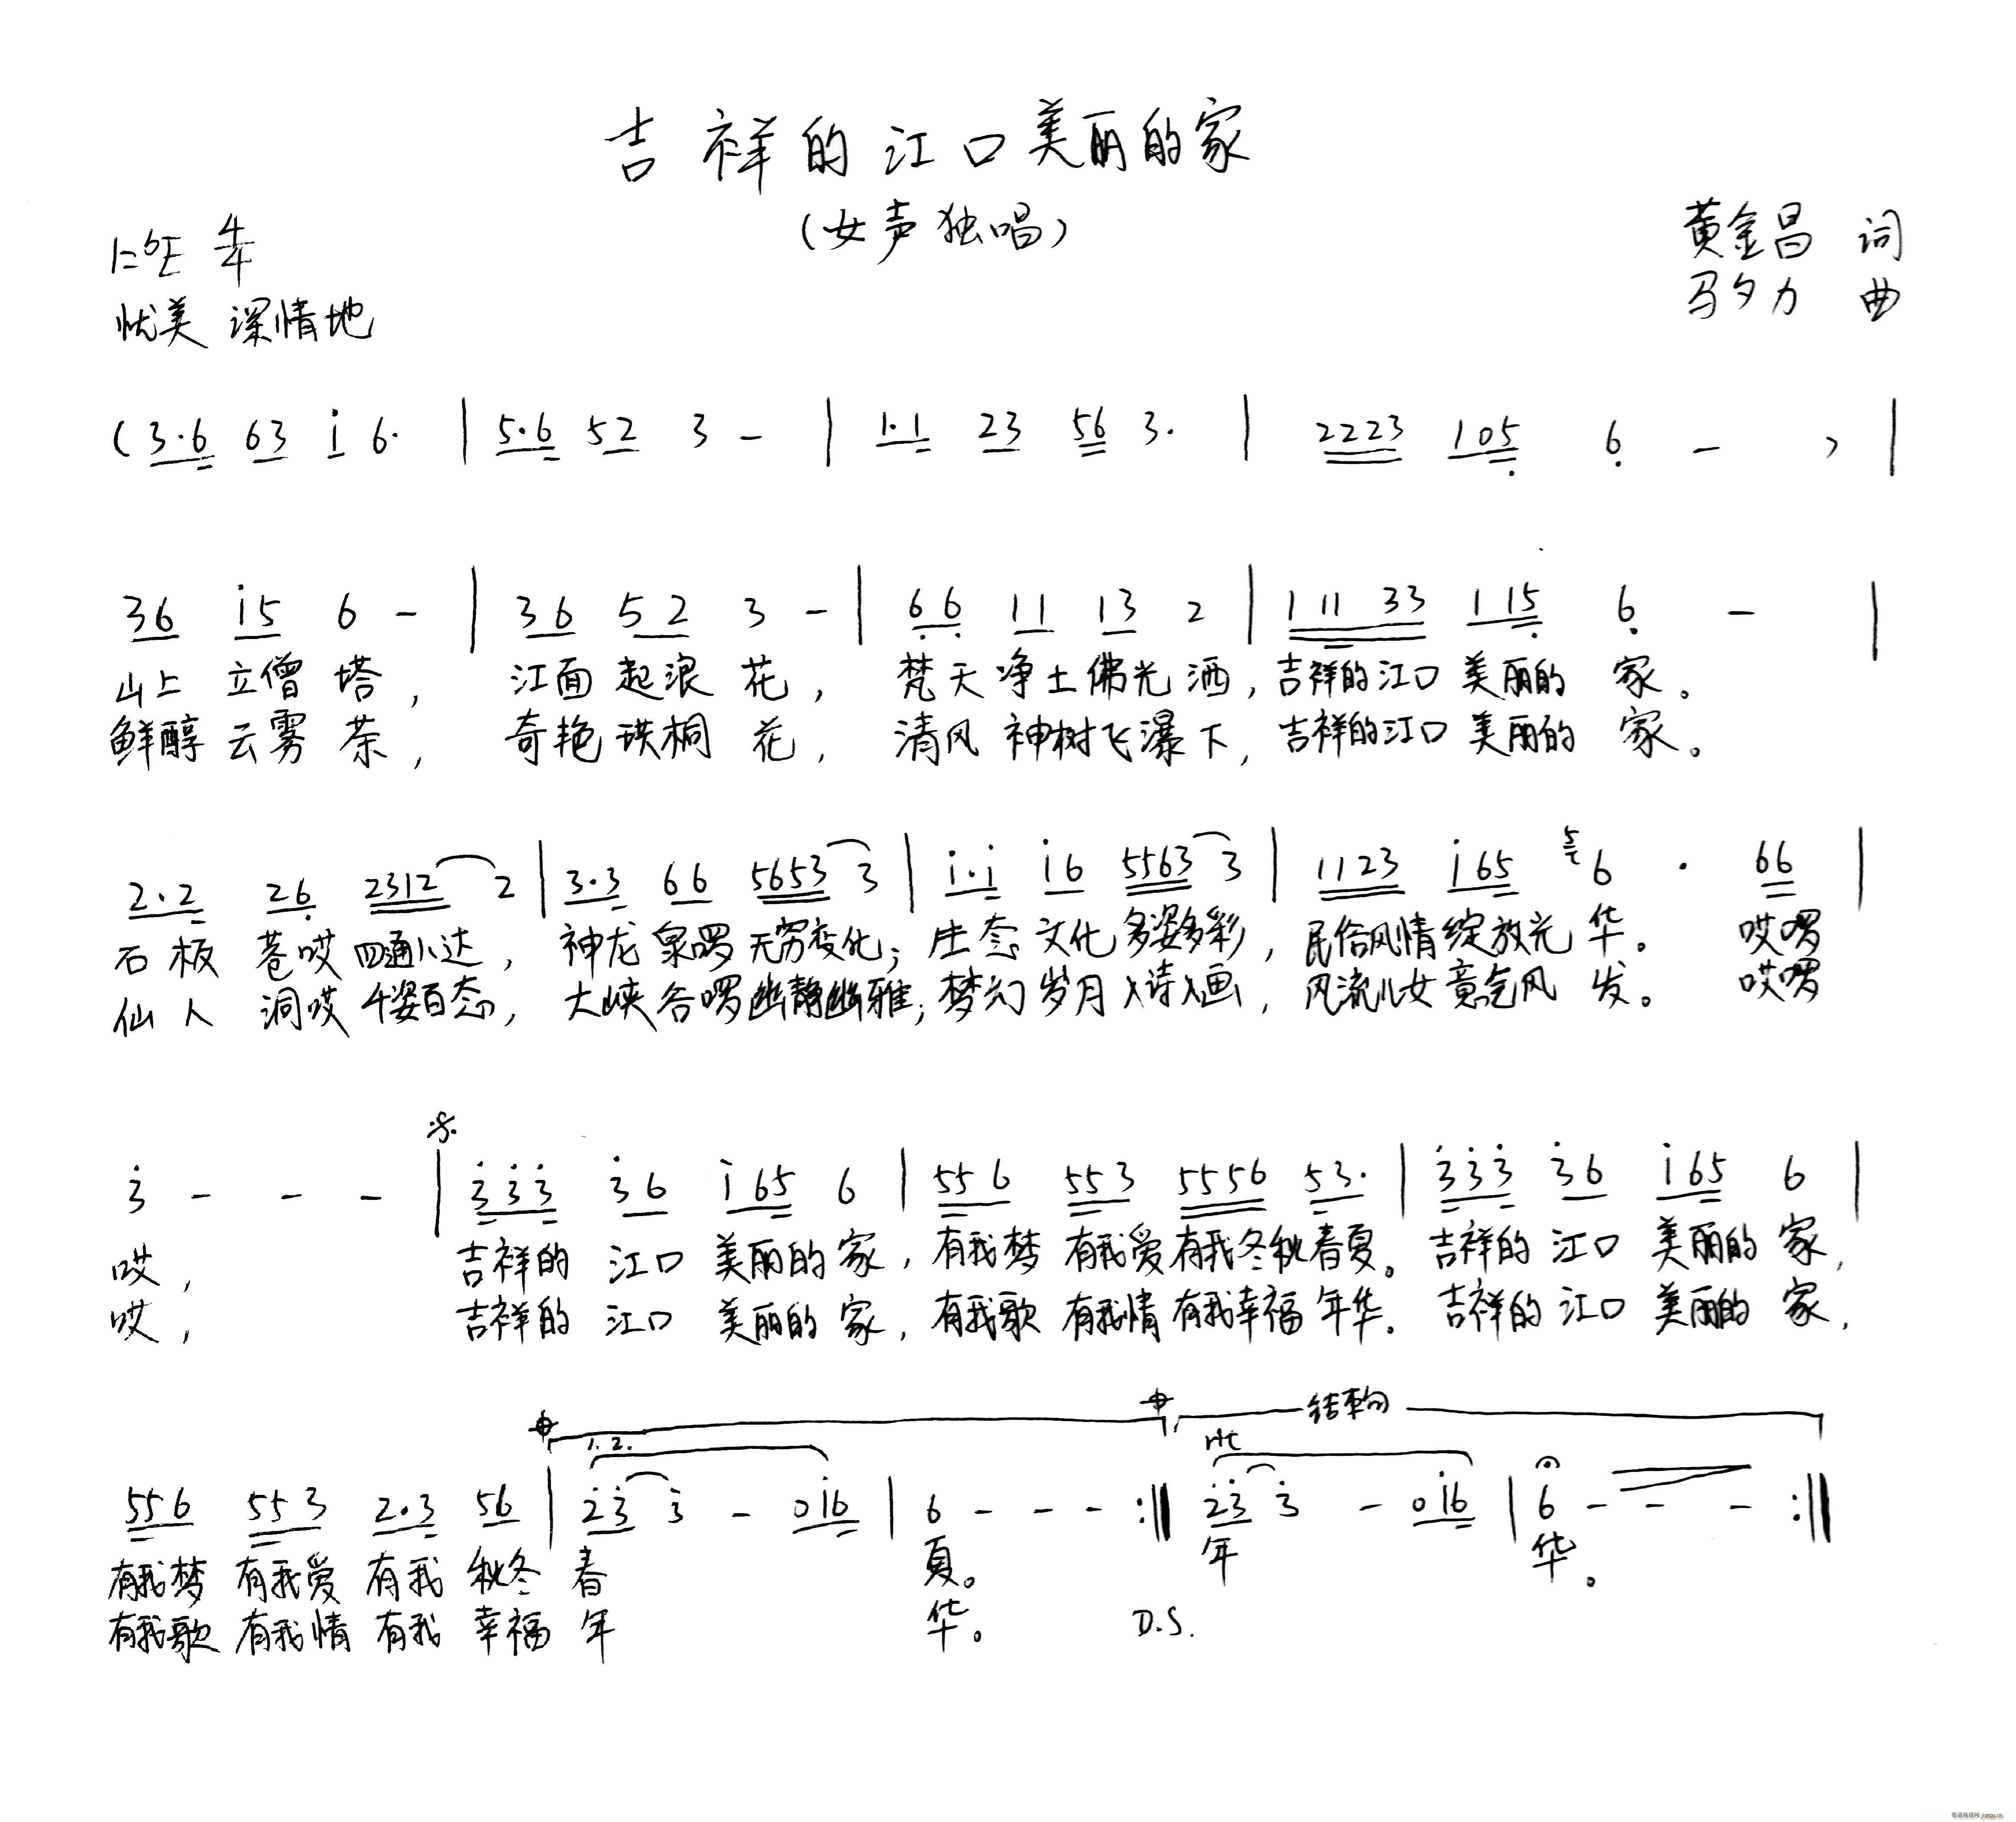 吉祥的江口美丽的家
(女声独唱)
1=bE 4/4
黄金昌 词
优美 深情地
马夕力 曲
(3·6 63 i 6· | 5·6 52 3 - | 1·1 23 56 3· | 2223 105 6 - ) |
36 i5 6 - | 36 52 3 - | 66 11 13 2 | 111 33 115 6 - |
山上 立僧 塔, 江面 起浪 花, 梵天净土佛光 洒, 吉祥的江口 美丽的 家。
鲜醇 云雾 茶, 奇艳 珙桐 花, 清风 神树飞瀑 下, 吉祥的江口 美丽的 家。
2·2 26 2312 2 | 3·3 66 5653 3 | i·i i6 5563 3 | 1123 i65 5 6 · 66 |
石板 苍哎 四通八达, 神龙 泉啰 无穷变化; 生态 文化 多姿多彩, 民俗风情绽放光 华。 哎啰
仙人 洞哎 千姿百态, 大峡谷啰幽静幽雅; 梦幻 岁月 入诗入画, 风流儿女 意气风 发。 哎啰
3 - - - | 333 36 i65 6 | 556 553 5556 53· | 333 36 i65 6 |
哎, 吉祥的 江口 美丽的 家, 有我梦 有我爱 有我冬秋春夏。 吉祥的 江口 美丽的 家,
哎, 吉祥的 江口 美丽的 家, 有我歌 有我情 有我幸福 年华。 吉祥的 江口 美丽的 家,
结束句
1. 2. rit
556 553 2·3 56 | 23 3 - 0i6 | 6 - - - :‖ 23 3 - 0i6 | 6 - - - :‖
有我梦 有我爱 有我 秋冬 春 夏。 年 华。
有我歌 有我情 有我 幸福 年 华。 D.S.